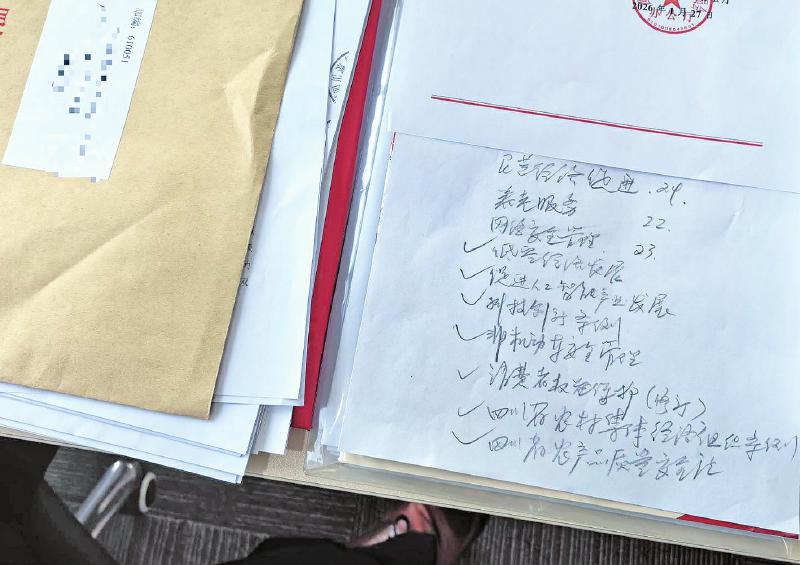 邮编 610051
2026年1月27日
办公厅
民营经济促进.24.
养老服务 22.
网络安全管理 23.
✓低空经济发展
✓促进人工智能产业发展
✓科技创新条例
✓非机动车安全管理
✓消费者权益保护(修订)
✓四川省农村集体经济组织条例
✓四川省农产品质量安全法